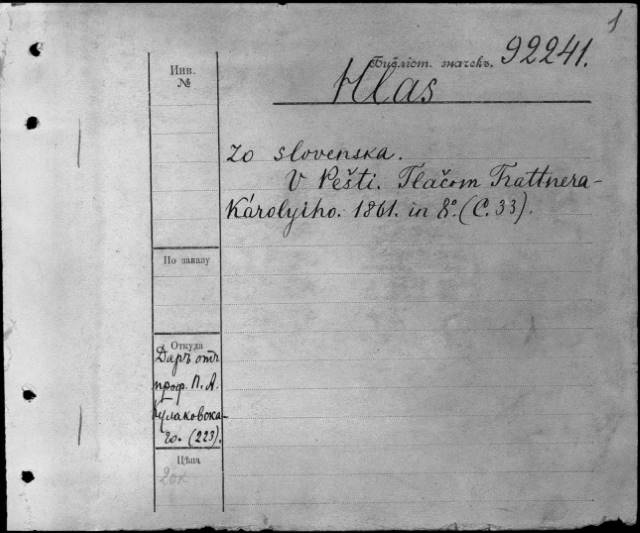 1
Библіот. значекъ. 92241.
Hlas
zo slovenska.
V Pešti. Tlačom Trattnera-
Károlyiho. 1861. in 8º. (C. 33).
Инв.
№
По заказу
Откуда
Даръ отъ
проф. П. А.
Кулаковска-
го. (223).
Цѣна
20к